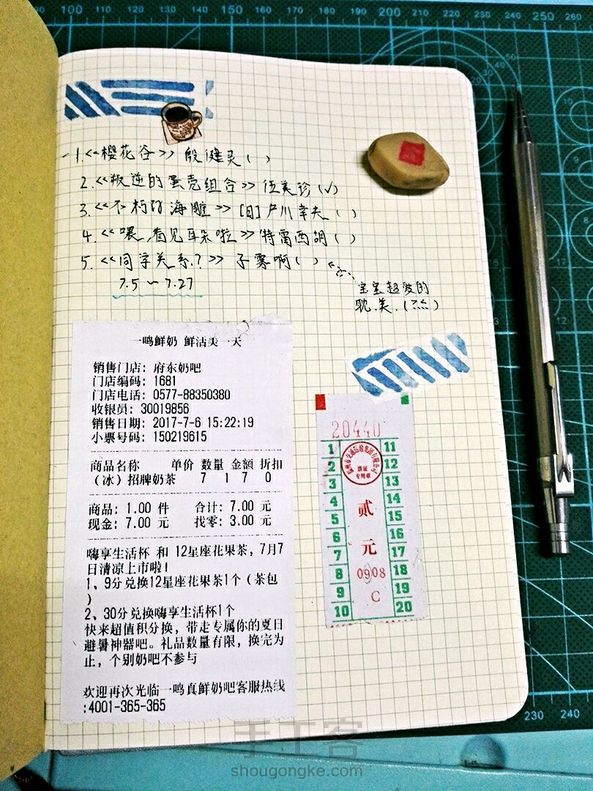 1.《樱花谷》 殷健灵 ( )
2.《叛逆的蛋壳组合》伍美珍 (√)
3.《不朽的海雕》[日]户川幸夫 ( )
4.《喂,看见耳朵啦》特雷西胡 ( )
5.《同字关系?》子雾啊 ( )
7.5 ~ 7.27
宝宝超爱的
耽.美.
一鸣鲜奶 鲜活美一天
销售门店: 府东奶吧
门店编码: 1681
门店电话: 0577-88350380
收银员: 30019856
销售日期: 2017-7-6 15:22:19
小票号码: 150219615
商品名称 单价 数量 金额 折扣
(冰) 招牌奶茶 7 1 7 0
商品: 1.00 件 合计: 7.00 元
现金: 7.00 元 找零: 3.00 元
嗨享生活杯 和 12星座花果茶, 7月7
日清凉上市啦!
1、9分兑换12星座花果茶1个 (茶包
)
2、30分兑换嗨享生活杯1个
快来超值积分换, 带走专属你的夏日
避暑神器吧。礼品数量有限, 换完为
止, 个别奶吧不参与
欢迎再次光临一鸣真鲜奶吧客服热线
:4001-365-365
20440
1 11
2 12
3 13
4 14
5 15
6 16
7 17
8 18
9 19
10 20
贰
元
0908
C
手工客
shougongke.com
100 110 120 130 140 150 160 170 180 190 200 210 220 230 240 250 260
230 240